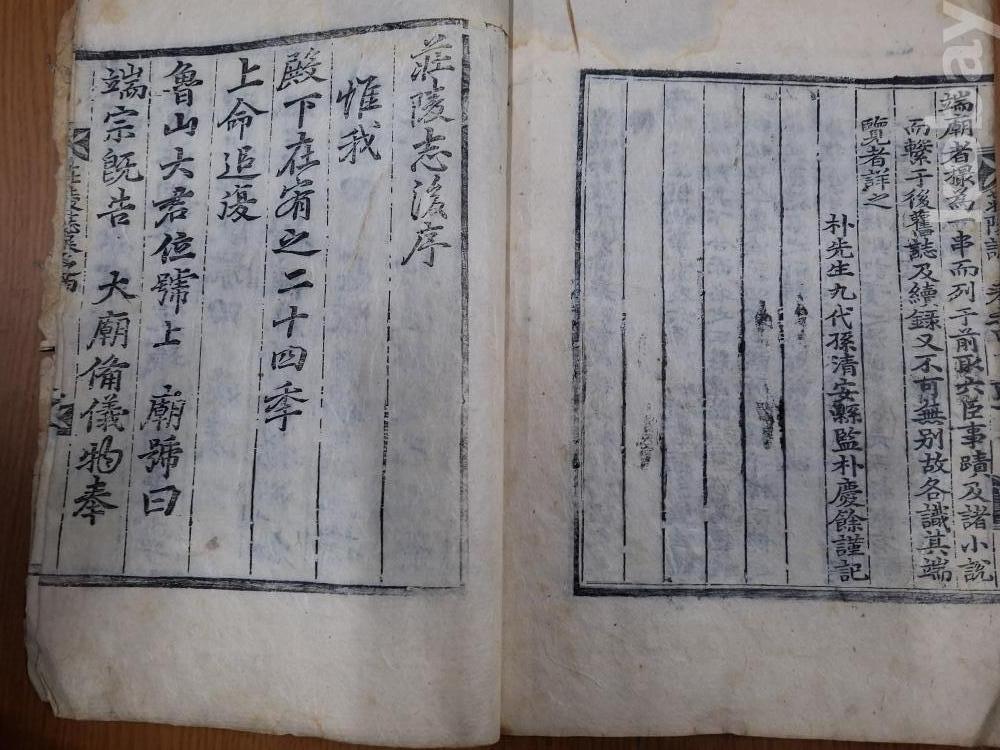 端廟者摠爲一串而列于前取六臣事蹟及諸小說
而繫于後舊誌及續錄又不可無別故各識其端
覽者詳之
朴先生九代孫清安縣監朴慶餘謹記
莊陵志後序
惟我
殿下在宥之二十四年
上命追復
魯山大君位號上 廟號曰
端宗旣告 大廟備儀物奉